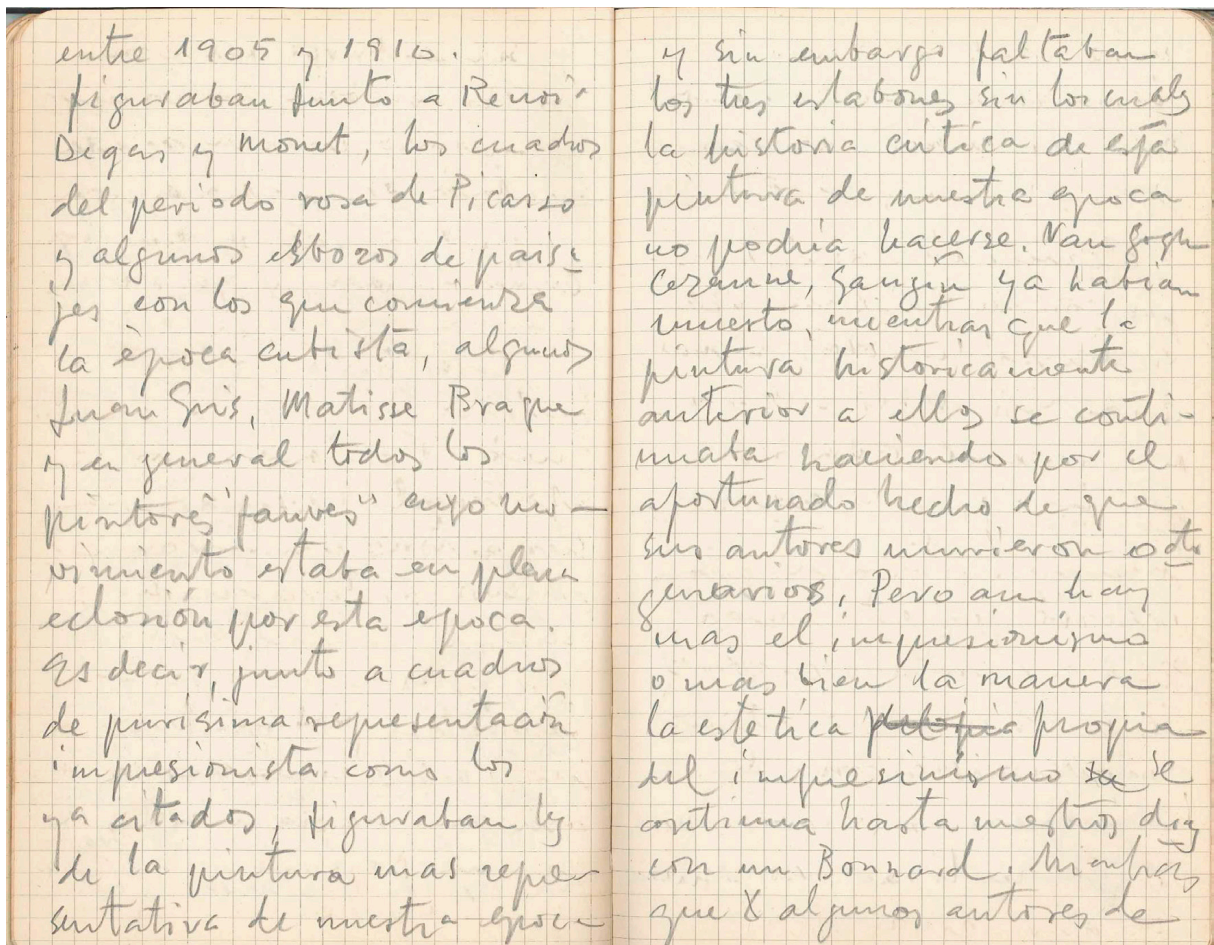 entre 1905 y 1910.
figuraban junto a Renoir
Degas y monet, los cuadros
del periodo rosa de Picasso
y algunos esbozos de paisa-
jes con los que comienza
la época cubista, algunos
Juan Gris, Matisse Braque
y en general todos los
pintores "fauves" cuyo mo-
vimiento estaba en plena
eclosión por esta epoca.
Es decir, junto a cuadros
de purisima representación
impresionista como los
ya citados, figuraban los
de la pintura mas repre-
sentativa de nuestra epoca
y sin embargo faltaban
los tres eslabones sin los cuales
la historia critica de esta
pintura de nuestra epoca
no podria hacerse. Van Gogh
Cezanne, Gaugin ya habian
muerto, mientras que la
pintura historicamente
anterior a ellos se conti-
nuaba haciendo por el
afortunado hecho de que
sus autores murieron octo
genarios, Pero aun hay
mas el impresionismo
o mas bien la manera
la estetica propia
del impresinismo se
continua hasta nuestros dias
con un Bonnard. Mientras
que X algunos autores de